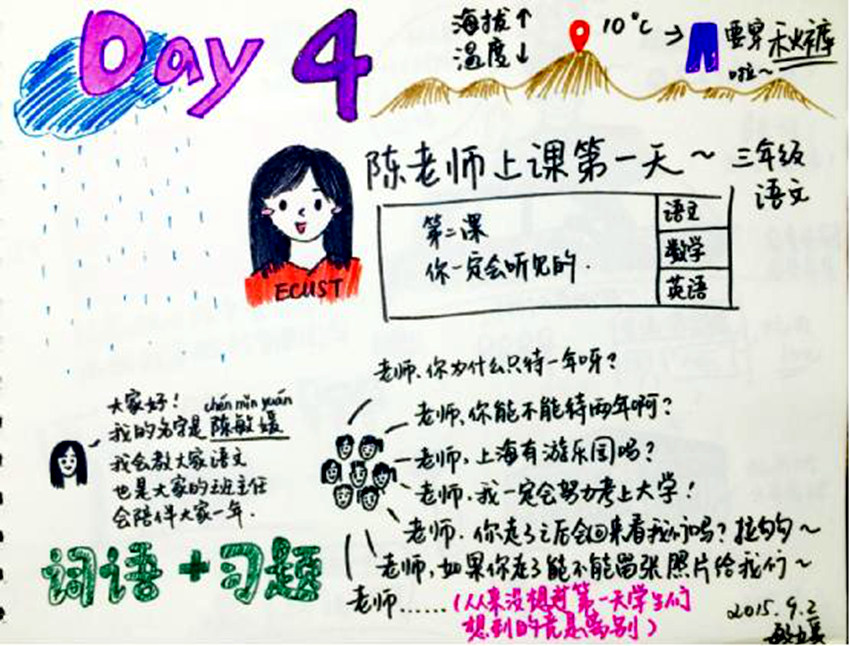 Day 4
海拔↑
温度↓
10°C →
要穿秋裤
啦~
陈老师上课第一天~
三年级
语文
第二课
你一定会听见的.
语文
数学
英语
ECUST
大家好!
chén mǐn yuán
我的名字是陈敏媛
我会教大家语文
也是大家的班主任
会陪伴大家一年.
词语+习题
老师、你为什么只待一年呀?
老师、你能不能待两年啊?
老师,上海有游乐园吗?
老师.我一定会努力考上大学!
老师.你走了之后会回来看我们吗?拉勾勾~
老师,如果你走了能不能留张照片给我们~
老师……(从来没想过第一天学生们
想到的竟是离别)
2015.9.2
敏媛